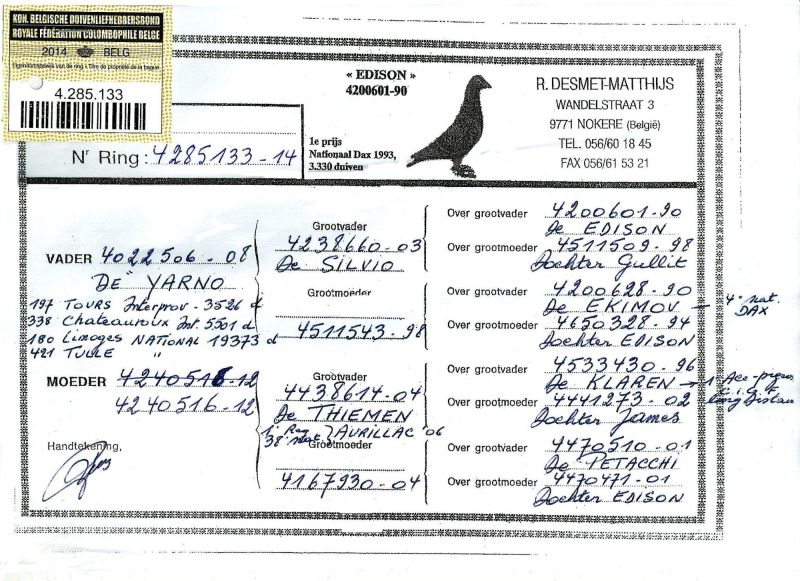 KON. BELGISCHE DUIVENLIEFHEBBERSBOND
ROYALE FÉDÉRATION COLOMBOPHILE BELGE
2014 BELG
Eigendomsbewijs van de ring • Titre de propriété de la bague
4.285.133
« EDISON »
4200601-90
1e prijs
Nationaal Dax 1993,
3.330 duiven
R. DESMET-MATTHIJS
WANDELSTRAAT 3
9771 NOKERE (België)
TEL. 056/60 18 45
FAX 056/61 53 21
Nr Ring : 4285133-14
VADER 4022506-08
"DE" YARNO
197 TOURS Interprov - 3526 d
338 Chateauroux Int. 5501 d
180 Limoges NATIONAL 19373 d
421 TULLE "
MOEDER 4240516-12
4240516-12
Handtekening,
Grootvader
4238660-03
De SILVIO
Grootmoeder
4511543-98
Grootvader
4438614-04
De THIEMEN
1e Reg
38e nat } AURILLAC '06
Grootmoeder
4167930-04
Over grootvader 4200601-90
De EDISON
Over grootmoeder 4511509-98
Dochter Gullit
Over grootvader 4200628-90
De EKIMOV - 4e nat. DAX
Over grootmoeder 4650328-94
Dochter EDISON
Over grootvader 4533430-96
De KLAREN → 1 Ace-pigeon
Over grootmoeder 4441273-02
Dochter James
Over grootvader 4470510-01
De PETACCHI
Over grootmoeder 4470471-01
Dochter EDISON